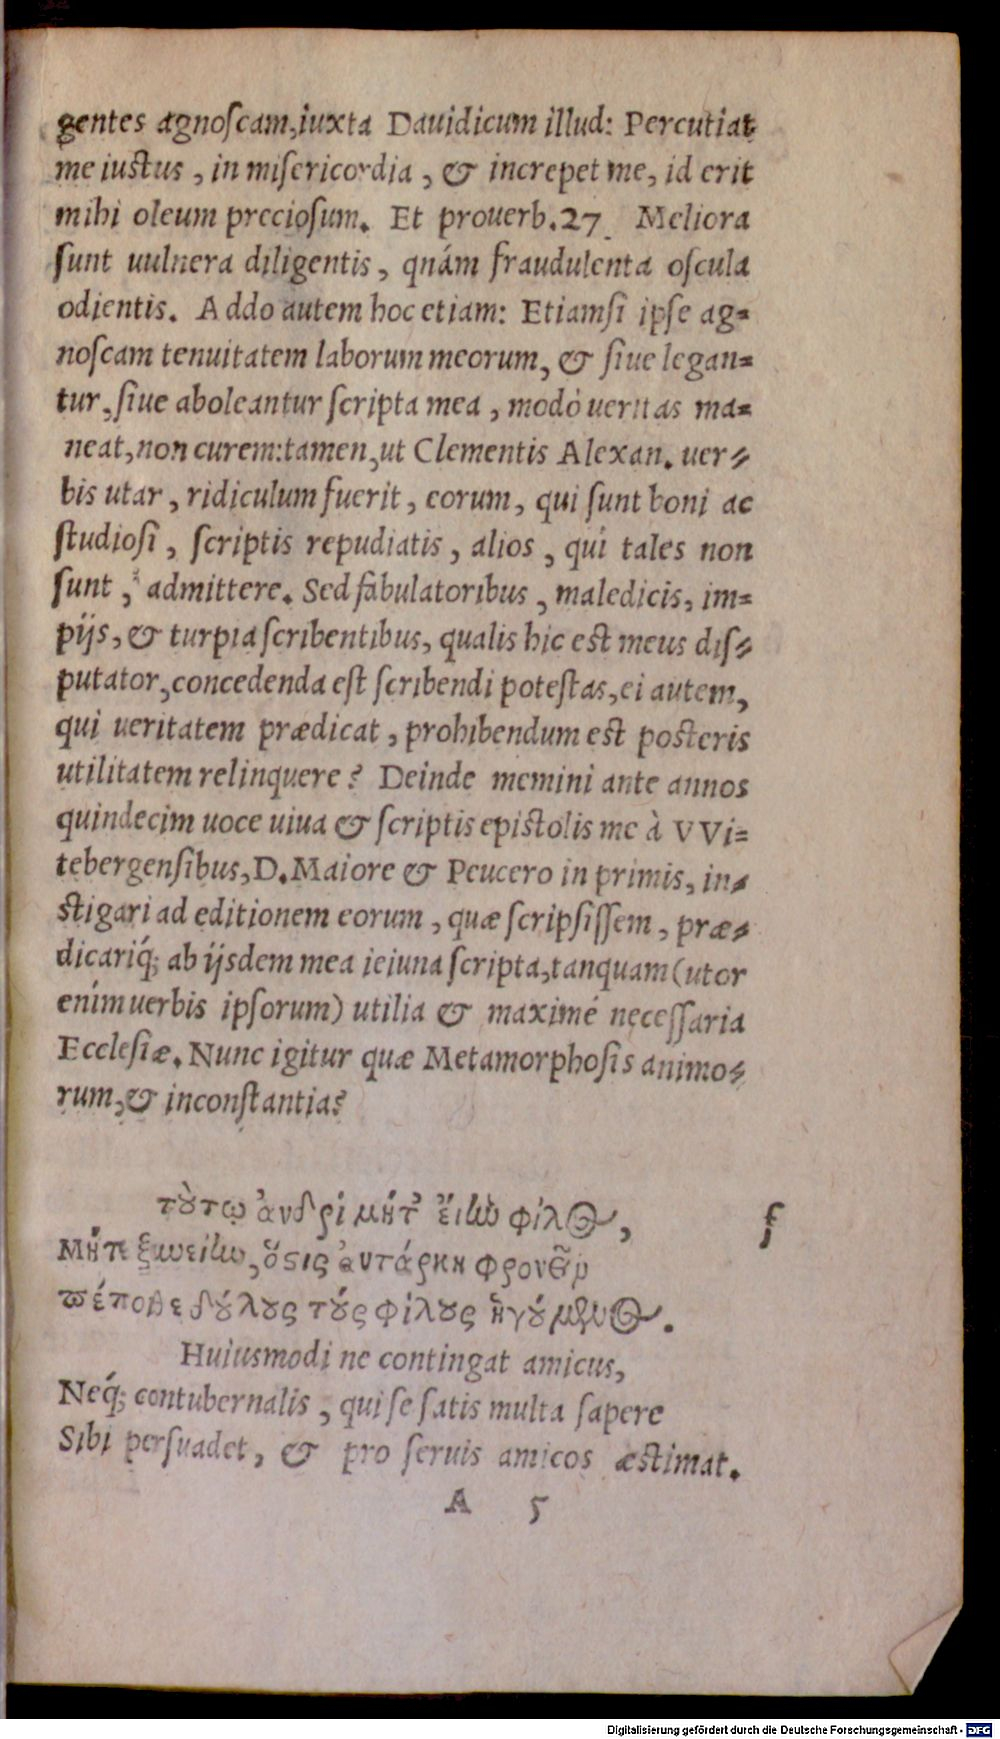 gentes agnoſcam, iuxta Dauidicum illud: Percutiat
me iuſtus, in miſericordia, & increpet me, id erit
mihi oleum precioſum. Et prouerb. 27. Meliora
ſunt uulnera diligentis, quám fraudulenta oſcula
odientis. Addo autem hoc etiam: Etiamſi ipſe ag=
noſcam tenuitatem laborum meorum, & ſiue legan=
tur, ſiue aboleantur ſcripta mea, modò ueritas ma=
neat, non curem: tamen, ut Clementis Alexan. uer=
bis utar, ridiculum fuerit, eorum, qui ſunt boni ac
ſtudioſi, ſcriptis repudiatis, alios, qui tales non
ſunt, admittere. Sed fabulatoribus, maledicis, im=
pijs, & turpia ſcribentibus, qualis hic eſt meus diſ=
putator, concedenda eſt ſcribendi poteſtas, ei autem,
qui ueritatem prædicat, prohibendum eſt poſteris
utilitatem relinquere? Deinde memini ante annos
quindecim uoce uiua & ſcriptis epiſtolis me à VVi=
tebergenſibus, D. Maiore & Peucero in primis, in=
ſtigari ad editionem eorum, quæ ſcripſiſſem, præ=
dicariq́; ab ijsdem mea ieiuna ſcripta, tanquam (utor
enim uerbis ipſorum) utilia & maximé neceſſaria
Eccleſiæ. Nunc igitur quæ Metamorphoſis animo=
rum, & inconſtantia?
τούτῳ ἀνδρὶ μήτ' εἴην φίλος,
Μήτε ξυνείην, ὅςις αὐτάρκη φρονεῖν
πέποιθε δούλους τοὺς φίλους ἡγούμενος.
f
Huiusmodi ne contingat amicus,
Neq́; contubernalis, qui ſe ſatis multa ſapere
Sibi perſuadet, & pro ſeruis amicos æſtimat.
A 5
Digitalisierung gefördert durch die Deutsche Forschungsgemeinschaft - DFG